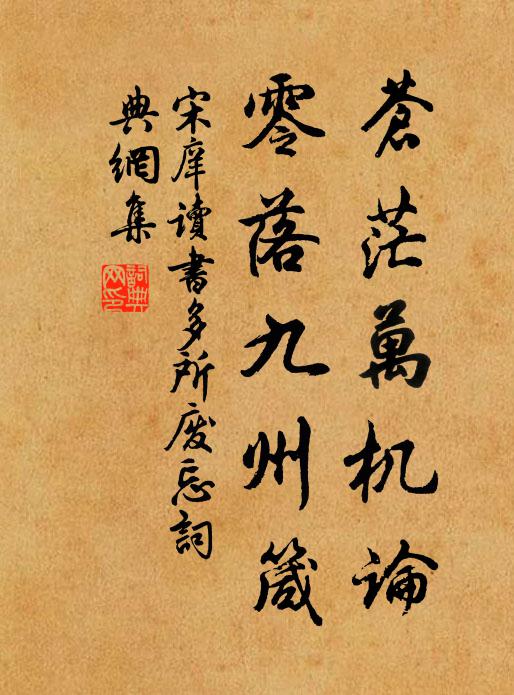 蒼茫萬机論
零落九州箴
宋庠讀書多所废忘詞
典網集
詞典網印